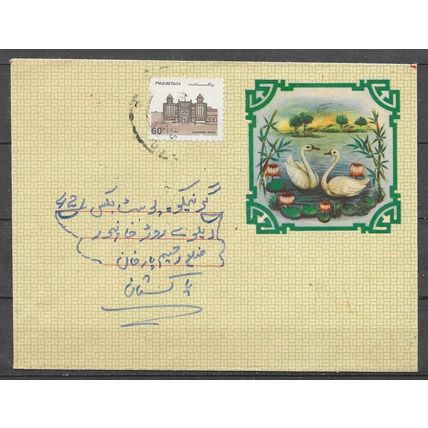 PAKISTAN پاکستان
60P
LAHORE FORT
گرینکو پوسٹ بکس 42
ریلوے روڑ خانپور
ضلع رحیم یارخان
پاکستان